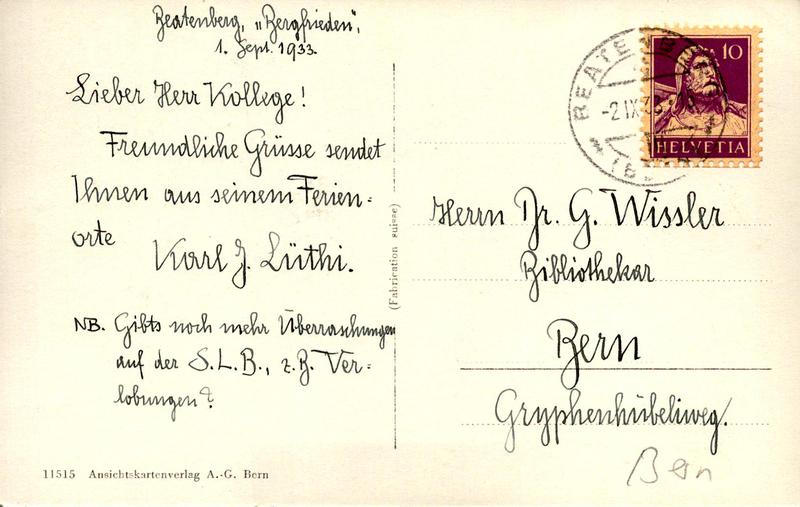 Beatenberg, "Bergfrieden",
1. Sept. 1933.
Lieber Herr Kollege!
Freundliche Grüsse sendet
Ihnen aus seinem Ferien-
orte
Karl J. Lüthi.
NB. Gibts noch mehr Überraschungen
auf der S.L.B., z.B. Ver-
lobungen?
11515 Ansichtskartenverlag A.-G. Bern
(Fabrication suisse)
BEATENB
-2 IX 33
10
HELVETIA
Herrn Dr. G. Wissler
Bibliothekar
Bern
Gryphenhübeliweg.
Bern